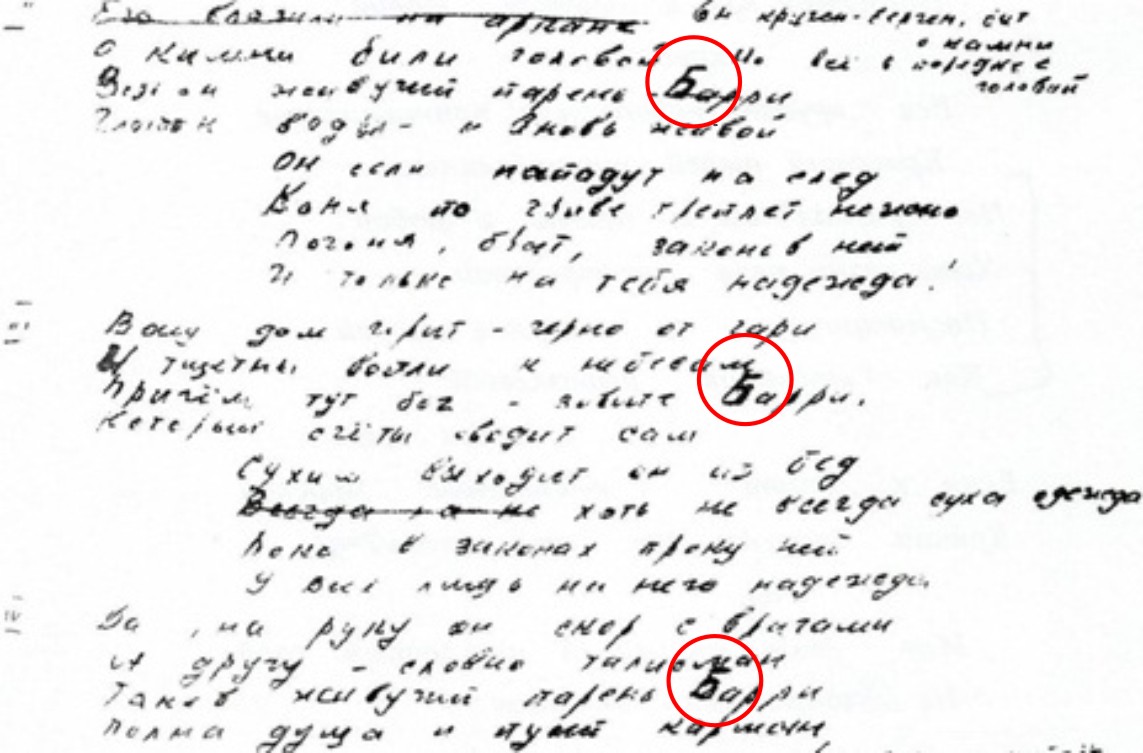 Его вязали на аркане
Он кручен-верчен, бит
о камни
О камни били головой
Но всё в порядке с
головой
Ведь он живучий парень - Барри
Глоток воды - и вновь живой
Он если нападут на след
Коня по гриве треплет нежно
Погоня, брат, закона нет
И только на тебя надежда!
Ваш дом горит - черно от гари
И тщетны вопли к небесам
Причём тут бог - зовите Барри,
Который счёты сводит сам
Сухим выходит он из бед
хоть не всегда суха одежда
Пока в законах проку нет
У всех лишь на него надежда
Да, на руку он скор с врагами
А другу - словно талисман
Таков живучий парень Барри
Полна душа и пуст карман